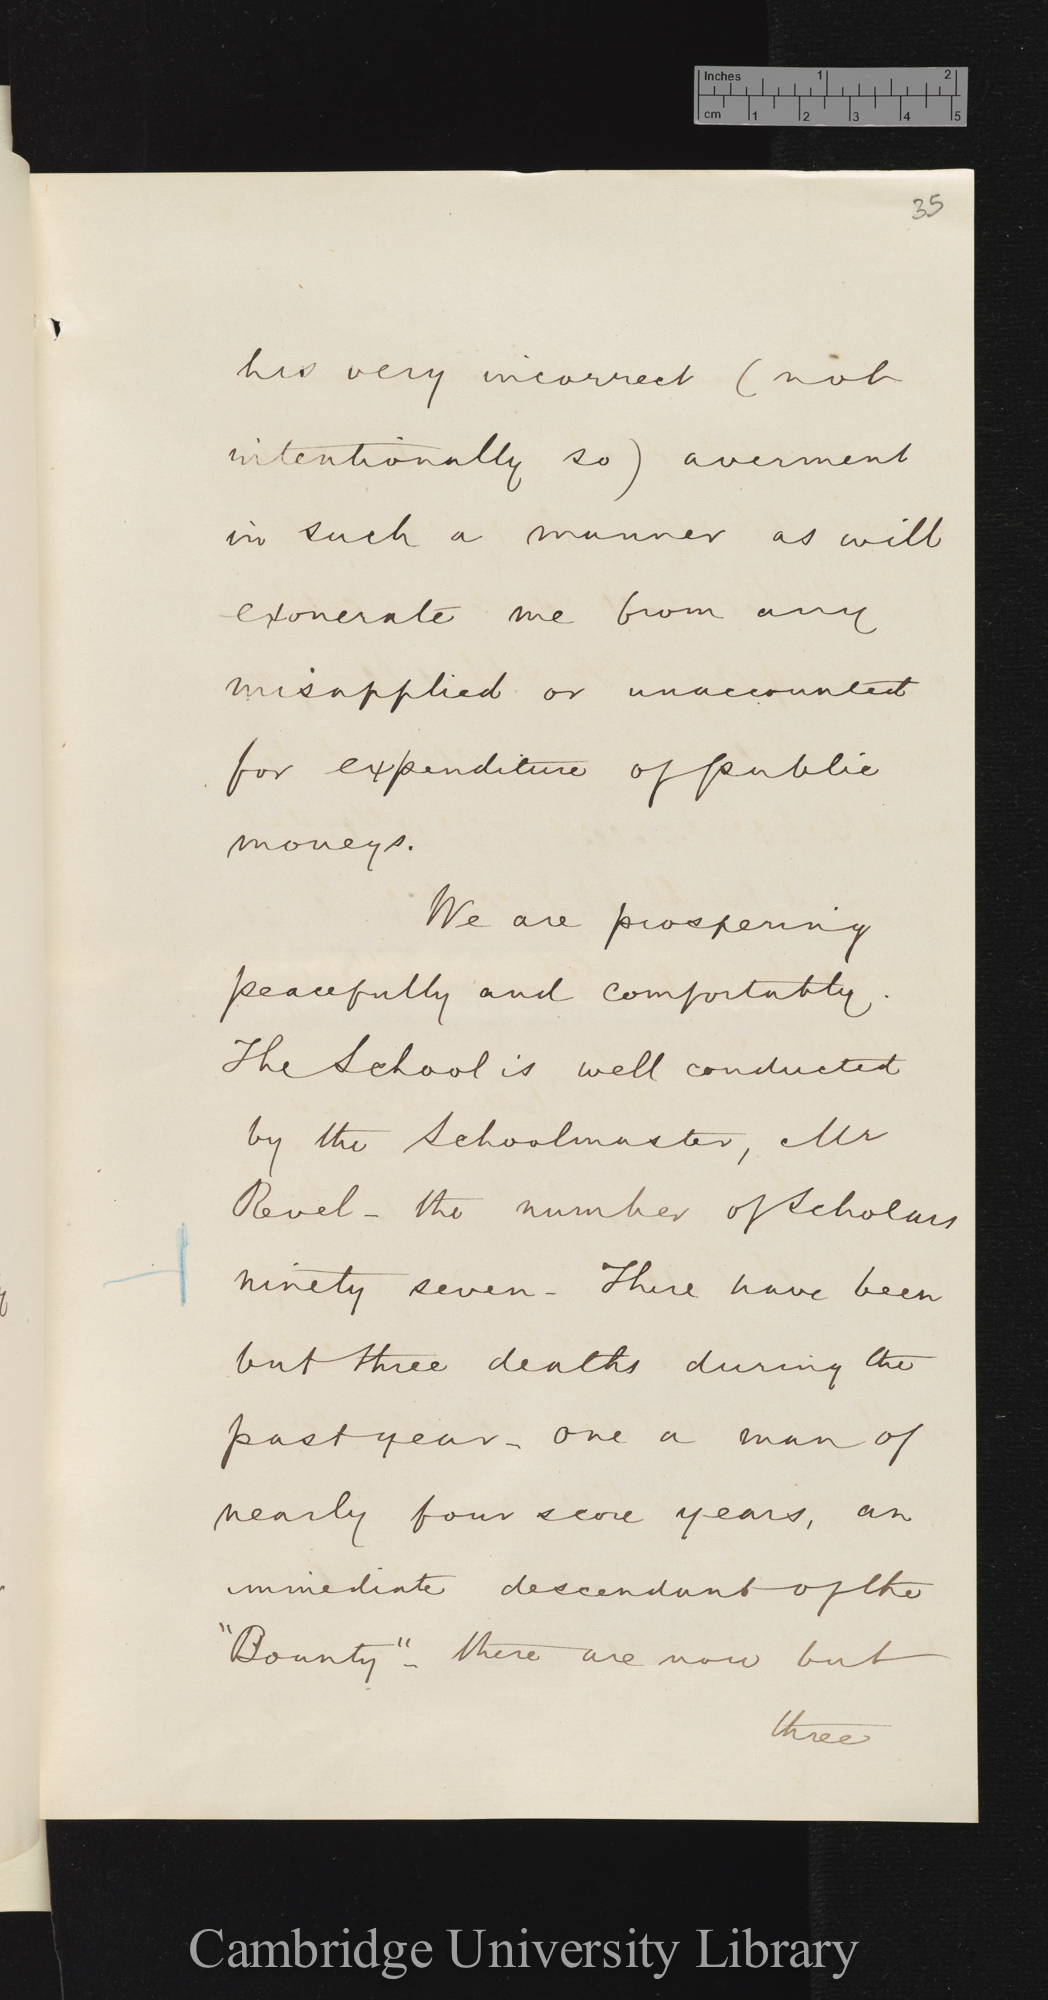 Inches 1 2
cm 1 2 3 4 5
35
his very incorrect (not
intentionally so) averment
in such a manner as will
exonerate me from any
misapplied or unaccounted
for expenditure of public
moneys.
We are prospering
peacefully and comfortably.
The School is well conducted
by the Schoolmaster, Mr
Revel - the number of Scholars
ninety seven - There have been
but three deaths during the
past year - one a man of
nearly four score years, an
immediate descendant of the
"Bounty" - there are now but
three
Cambridge University Library